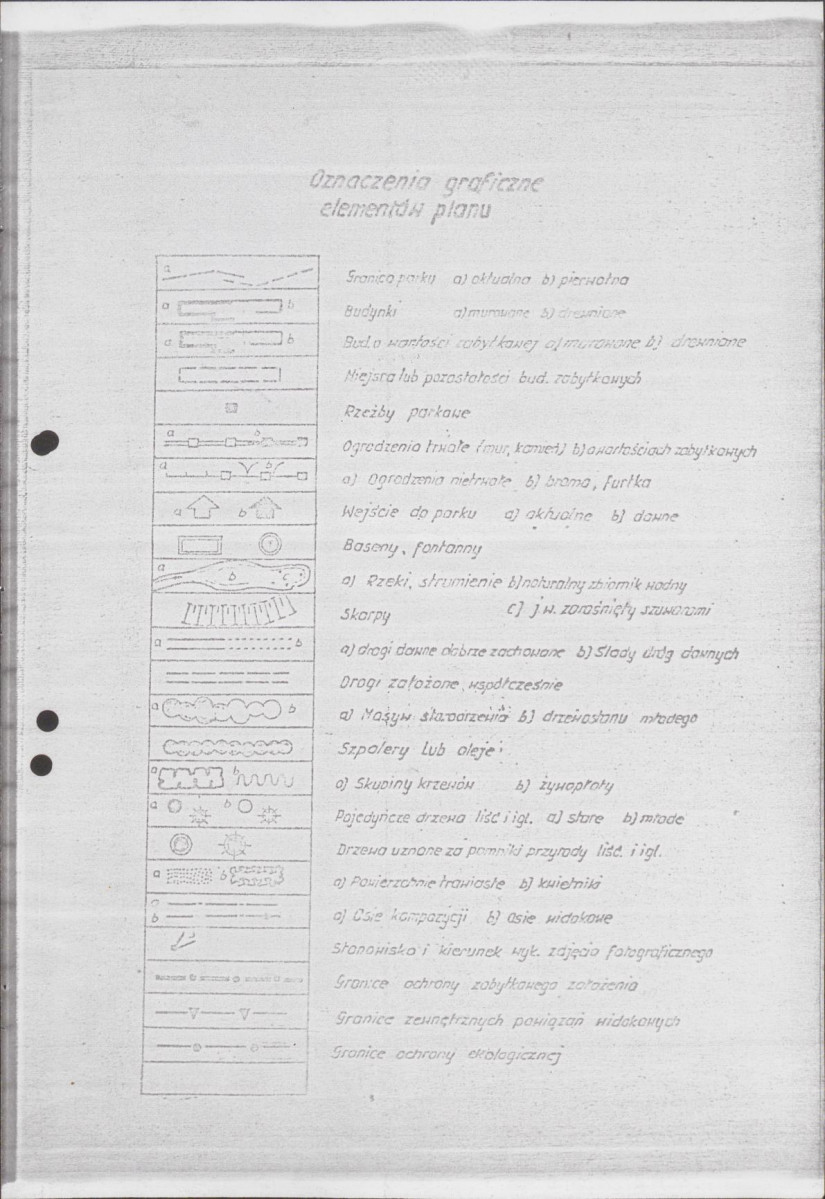 Oznaczenia graficzne
elementów planu
a Granica parku a) aktualna b) pierwotna
a b Budynki a) murowane b) drewniane
a b Bud. o wartości zabytkowej a) murowane b) drewniane
Miejsca lub pozostałości bud. zabytkowych
Rzeźby parkowe
a b Ogrodzenia trwałe (mur, kamień) b) o wartościach zabytkowych
a b a) Ogrodzenia nietrwałe b) brama, furtka
a b Wejście do parku a) aktualne b) dawne
Baseny, fontanny
a b c a) Rzeki, strumienie b) naturalny zbiornik wodny
Skarpy c) j.w. zarośnięty szuwarami
a b a) drogi dawne dobrze zachowane b) Ślady dróg dawnych
Drogi założone współcześnie
a b a) Masyw starodrzewia b) drzewostanu młodego
Szpalery lub aleje
a b a) Skupiny krzewów b) żywopłoty
a b Pojedyńcze drzewa liść i igl. a) stare b) młode
Drzewa uznane za pomniki przyrody liść. i igl.
a b a) Powierzchnie trawiaste b) kwietniki
a
b a) Osie kompozycji b) Osie widokowe
Stanowiska i kierunek wyk. zdjęcia fotograficznego
Granice ochrony zabytkowego założenia
Granice zewnętrznych powiązań widokowych
Granice ochrony ekologicznej